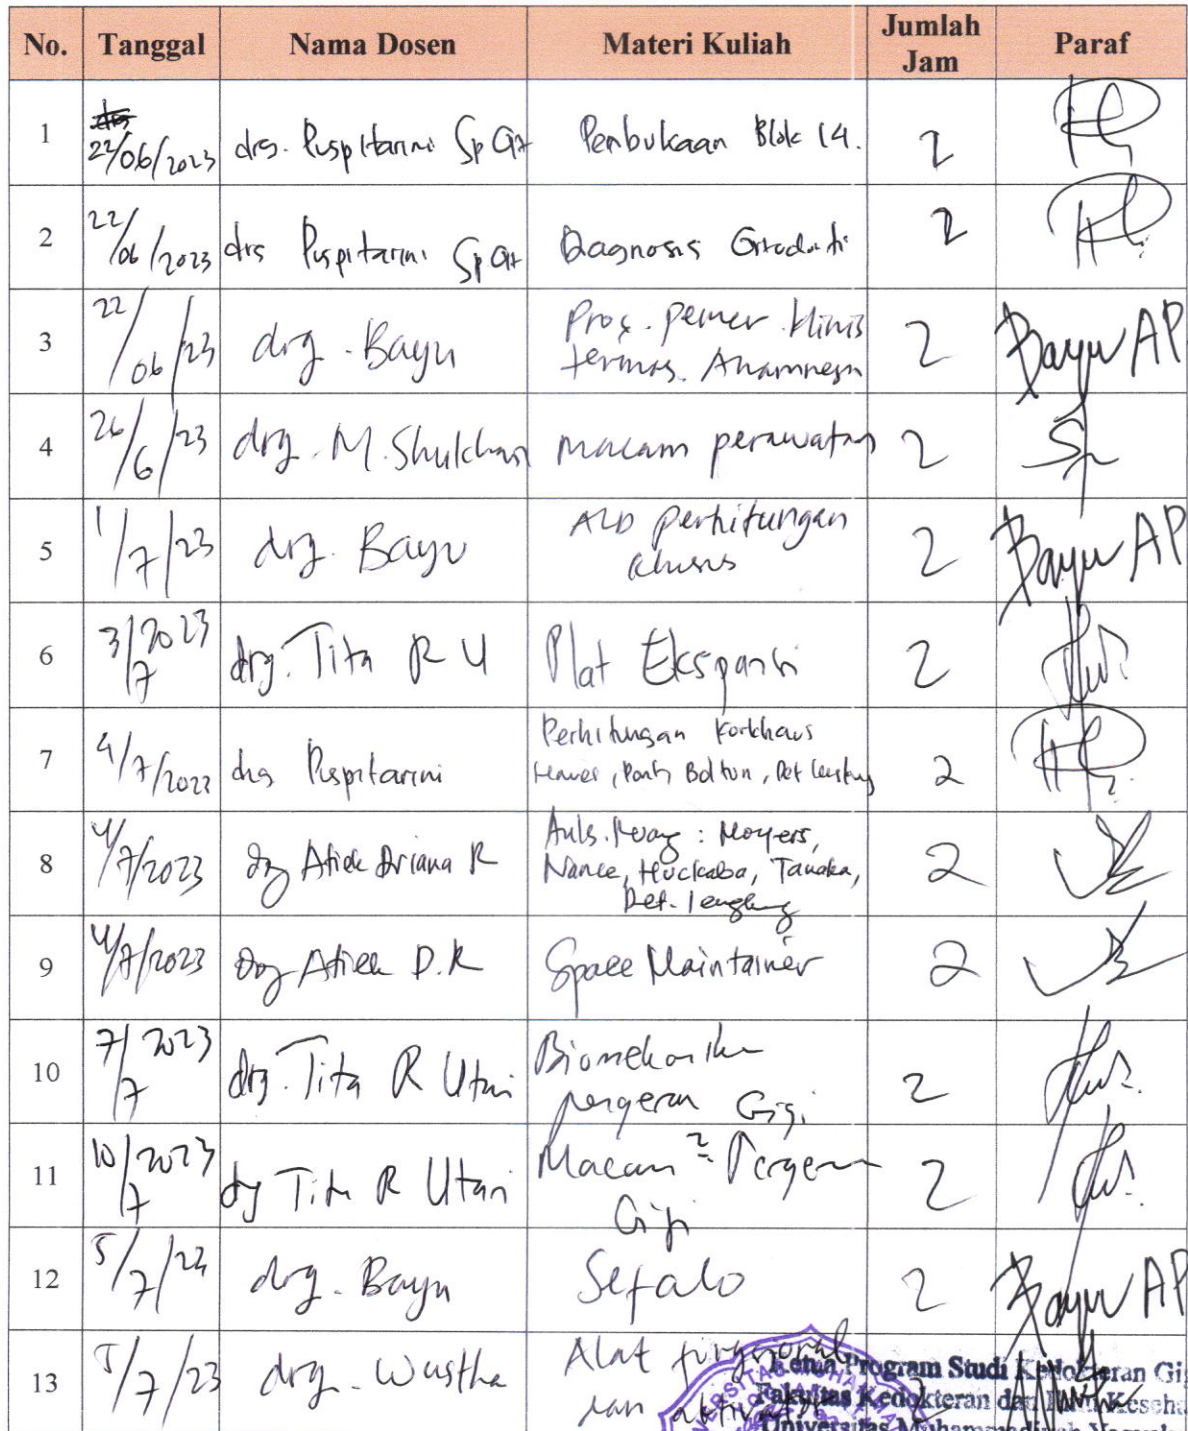 No. Tanggal Nama Dosen Materi Kuliah Jumlah Jam Paraf
1 22/06/2023 drg. Puspitarini Sp Ort Pembukaan Blok 14. 2
2 22/06/2023 drg Puspitarini Sp Ort Diagnosis Ortodonti 2
3 22/06/23 drg. Bayu Pros. pemer. klinis 2 Bayu AP
termas. Anamnesa
4 26/6/23 drg. M. Shulchan macam perawatan 2
5 1/7/23 drg. Bayu ALD perhitungan 2 Bayu AP
khusus
6 3/7/2023 drg. Tita R U Plat Ekspansi 2
7 4/7/2023 drg Puspitarini Perhitungan Korkhaus 2
Howes, Pont, Bolton, Det lengkung
8 4/7/2023 drg Atiek Driana R Anls. Ruang : Moyers, 2
Nance, Huckaba, Tanaka,
Det. lengkung
9 4/7/2023 drg Atiek D. R Space Maintainer 2
10 7/7/2023 drg. Tita R Utari Biomekanika 2
pergeran Gigi
11 10/7/2023 drg Tita R Utari Macam² Pergeran 2
Gigi
12 5/7/23 drg. Bayu Sefalo 2 Bayu AP
13 5/7/23 drg. Wustha Alat fungsional
dan aktivator
Ketua Program Studi Kedokteran Gigi
Fakultas Kedokteran dan Ilmu Keseha
Universitas Muhammadiyah Yogyak